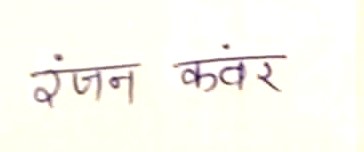 रंजन कवंर